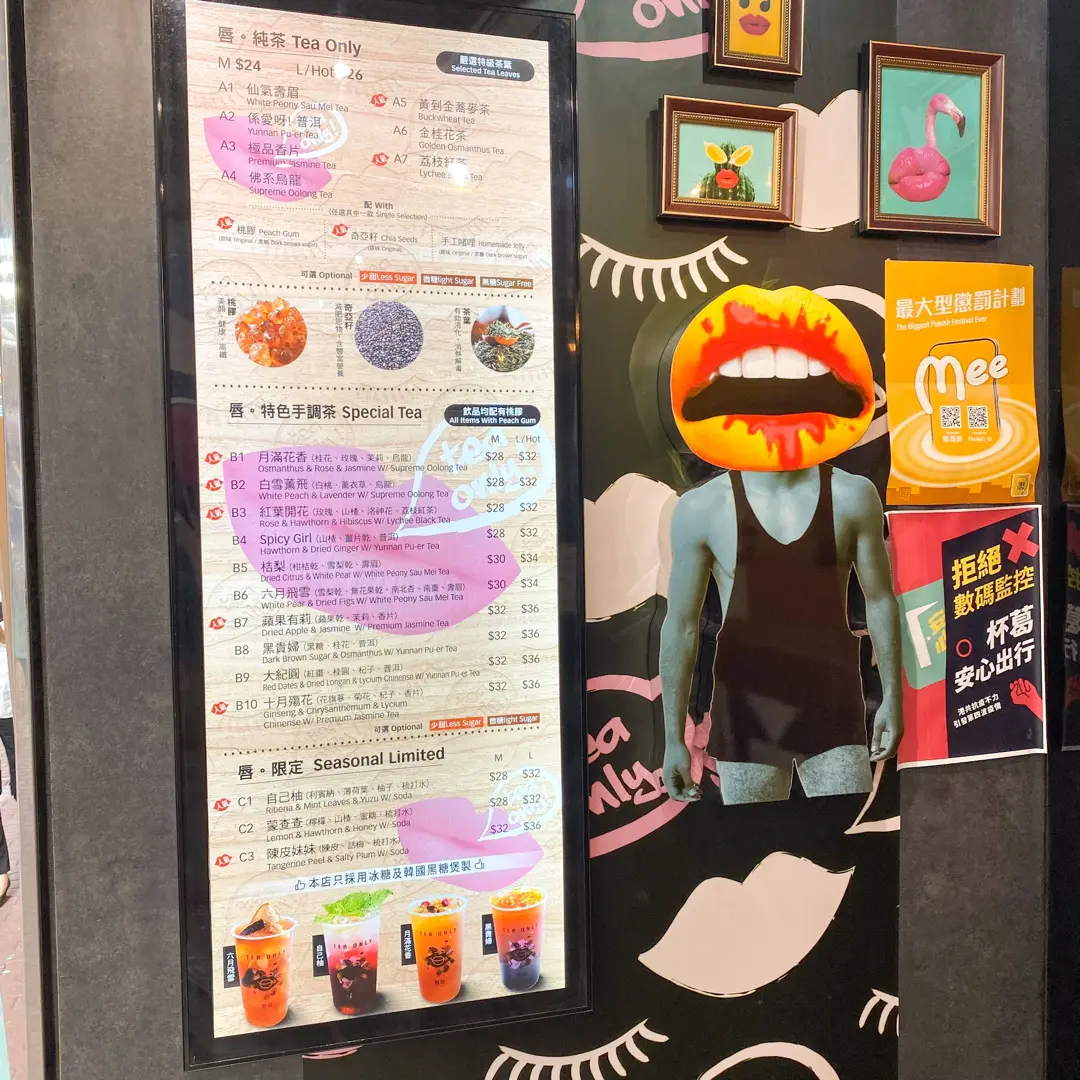 唇。純茶 Tea Only
嚴選特級茶葉
Selected Tea Leaves
M $24 L/Hot 26
A1 仙氣壽眉
White Peony Sau Mei Tea
A2 係愛呀!普洱
Yunnan Pu-er Tea
A3 極品香片
Premium Jasmine Tea
A4 佛系烏龍
Supreme Oolong Tea
A5 黃到金蕎麥茶
Buckwheat Tea
A6 金桂花茶
Golden Osmanthus Tea
A7 荔枝紅茶
Lychee Tea
only!
配 With
(任選其中一款 Single Selection)
桃膠 Peach Gum
(原味 Original / 黑糖 Dark brown sugar)
奇亞籽 Chia Seeds
(原味 Original)
手工啫喱 Homemade Jelly
(原味 Original / 黑糖 Dark brown sugar)
可選 Optional 少甜Less Sugar 微糖light Sugar 無糖Sugar Free
桃膠
美顏、健康、高纖
奇亞籽
減肥恩物、含豐富營養
茶葉
有助消化、消熱解毒
唇。特色手調茶 Special Tea
飲品均配有桃膠
All Items With Peach Gum
M L/Hot
B1 月滿花香 (桂花、玫瑰、茉莉、烏龍) $28 $32
Osmanthus & Rose & Jasmine W/ Supreme Oolong Tea
B2 白雪薰飛 (白桃、薰衣草、烏龍) $28 $32
White Peach & Lavender W/ Supreme Oolong Tea
B3 紅葉開花 (玫瑰、山楂、洛神花、荔枝紅茶) $28 $32
Rose & Hawthorn & Hibiscus W/ Lychee Black Tea
B4 Spicy Girl (山楂、薑片乾、普洱) $28 $32
Hawthorn & Dried Ginger W/ Yunnan Pu-er Tea
B5 桔梨 (柑桔乾、雪梨乾、壽眉) $30 $34
Dried Citrus & White Pear W/ White Peony Sau Mei Tea
B6 六月飛雪 (雪梨乾、無花果乾、南北杏、南棗、壽眉) $30 $34
White Pear & Dried Figs W/ White Peony Sau Mei Tea
B7 蘋果有莉 (蘋果乾、茉莉、香片) $32 $36
Dried Apple & Jasmine W/ Premium Jasmine Tea
B8 黑貴婦 (黑糖、桂花、普洱) $32 $36
Dark Brown Sugar & Osmanthus W/ Yunnan Pu-er Tea
B9 大紀圓 (紅棗、桂圓、杞子、普洱) $32 $36
Red Dates & Dried Longan & Lycium Chinense W/ Yunnan Pu-er Tea
B10 十月殤花 (花旗蔘、菊花、杞子、香片) $32 $36
Ginseng & Chrysanthemum & Lycium
Chinense W/ Premium Jasmine Tea
tea
only!
可選 Optional 少甜Less Sugar 微糖light Sugar
唇。限定 Seasonal Limited
M L
C1 自己柚 (利賓納、薄荷葉、柚子、梳打水) $28 $32
Ribena & Mint Leaves & Yuzu W/ Soda
C2 蒙查查 (檸檬、山楂、蜜糖、梳打水) $28 $32
Lemon & Hawthorn & Honey W/ Soda
C3 陳皮妹妹 (陳皮、話梅、梳打水) $32 $36
Tangerine Peel & Salty Plum W/ Soda
本店只採用冰糖及韓國黑糖煲製
六月飛雪
自己柚
月滿花香
黑貴婦
TEA ONLY
TEA ONLY
TEA ONLY
TEA ONLY
only!
最大型懲罰計劃
The Biggest Punish Festival Ever
Mee
拒絕
數碼監控
杯葛
安心出行
港共抗疫不力
引發第四波疫情